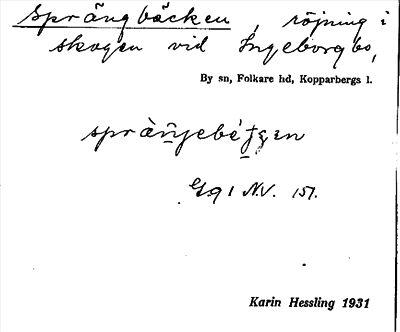 Språngbäcken, röjning i
skogen vid Ingeborgbo,
By sn, Folkare hd, Kopparbergs l.
N.V. 151.
Karin Hessling 1931